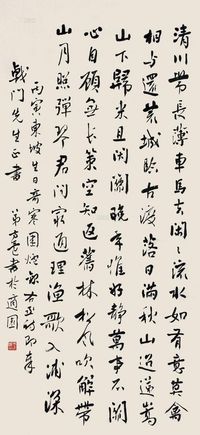 清川帶長薄車馬去閑〻流水如有意莫禽
相与還荒城臨古渡落日滿秋山迢遞嵩
山下歸来且閉關晚年惟好靜萬事不關
心自顧無長策空知返舊林松風吹解帶
山月照彈琴君問窮通理漁歌入浦深
丙寅東坡生日奇寒圍炉録右丞詩即奉
戟門先生正書 弟方書於適園